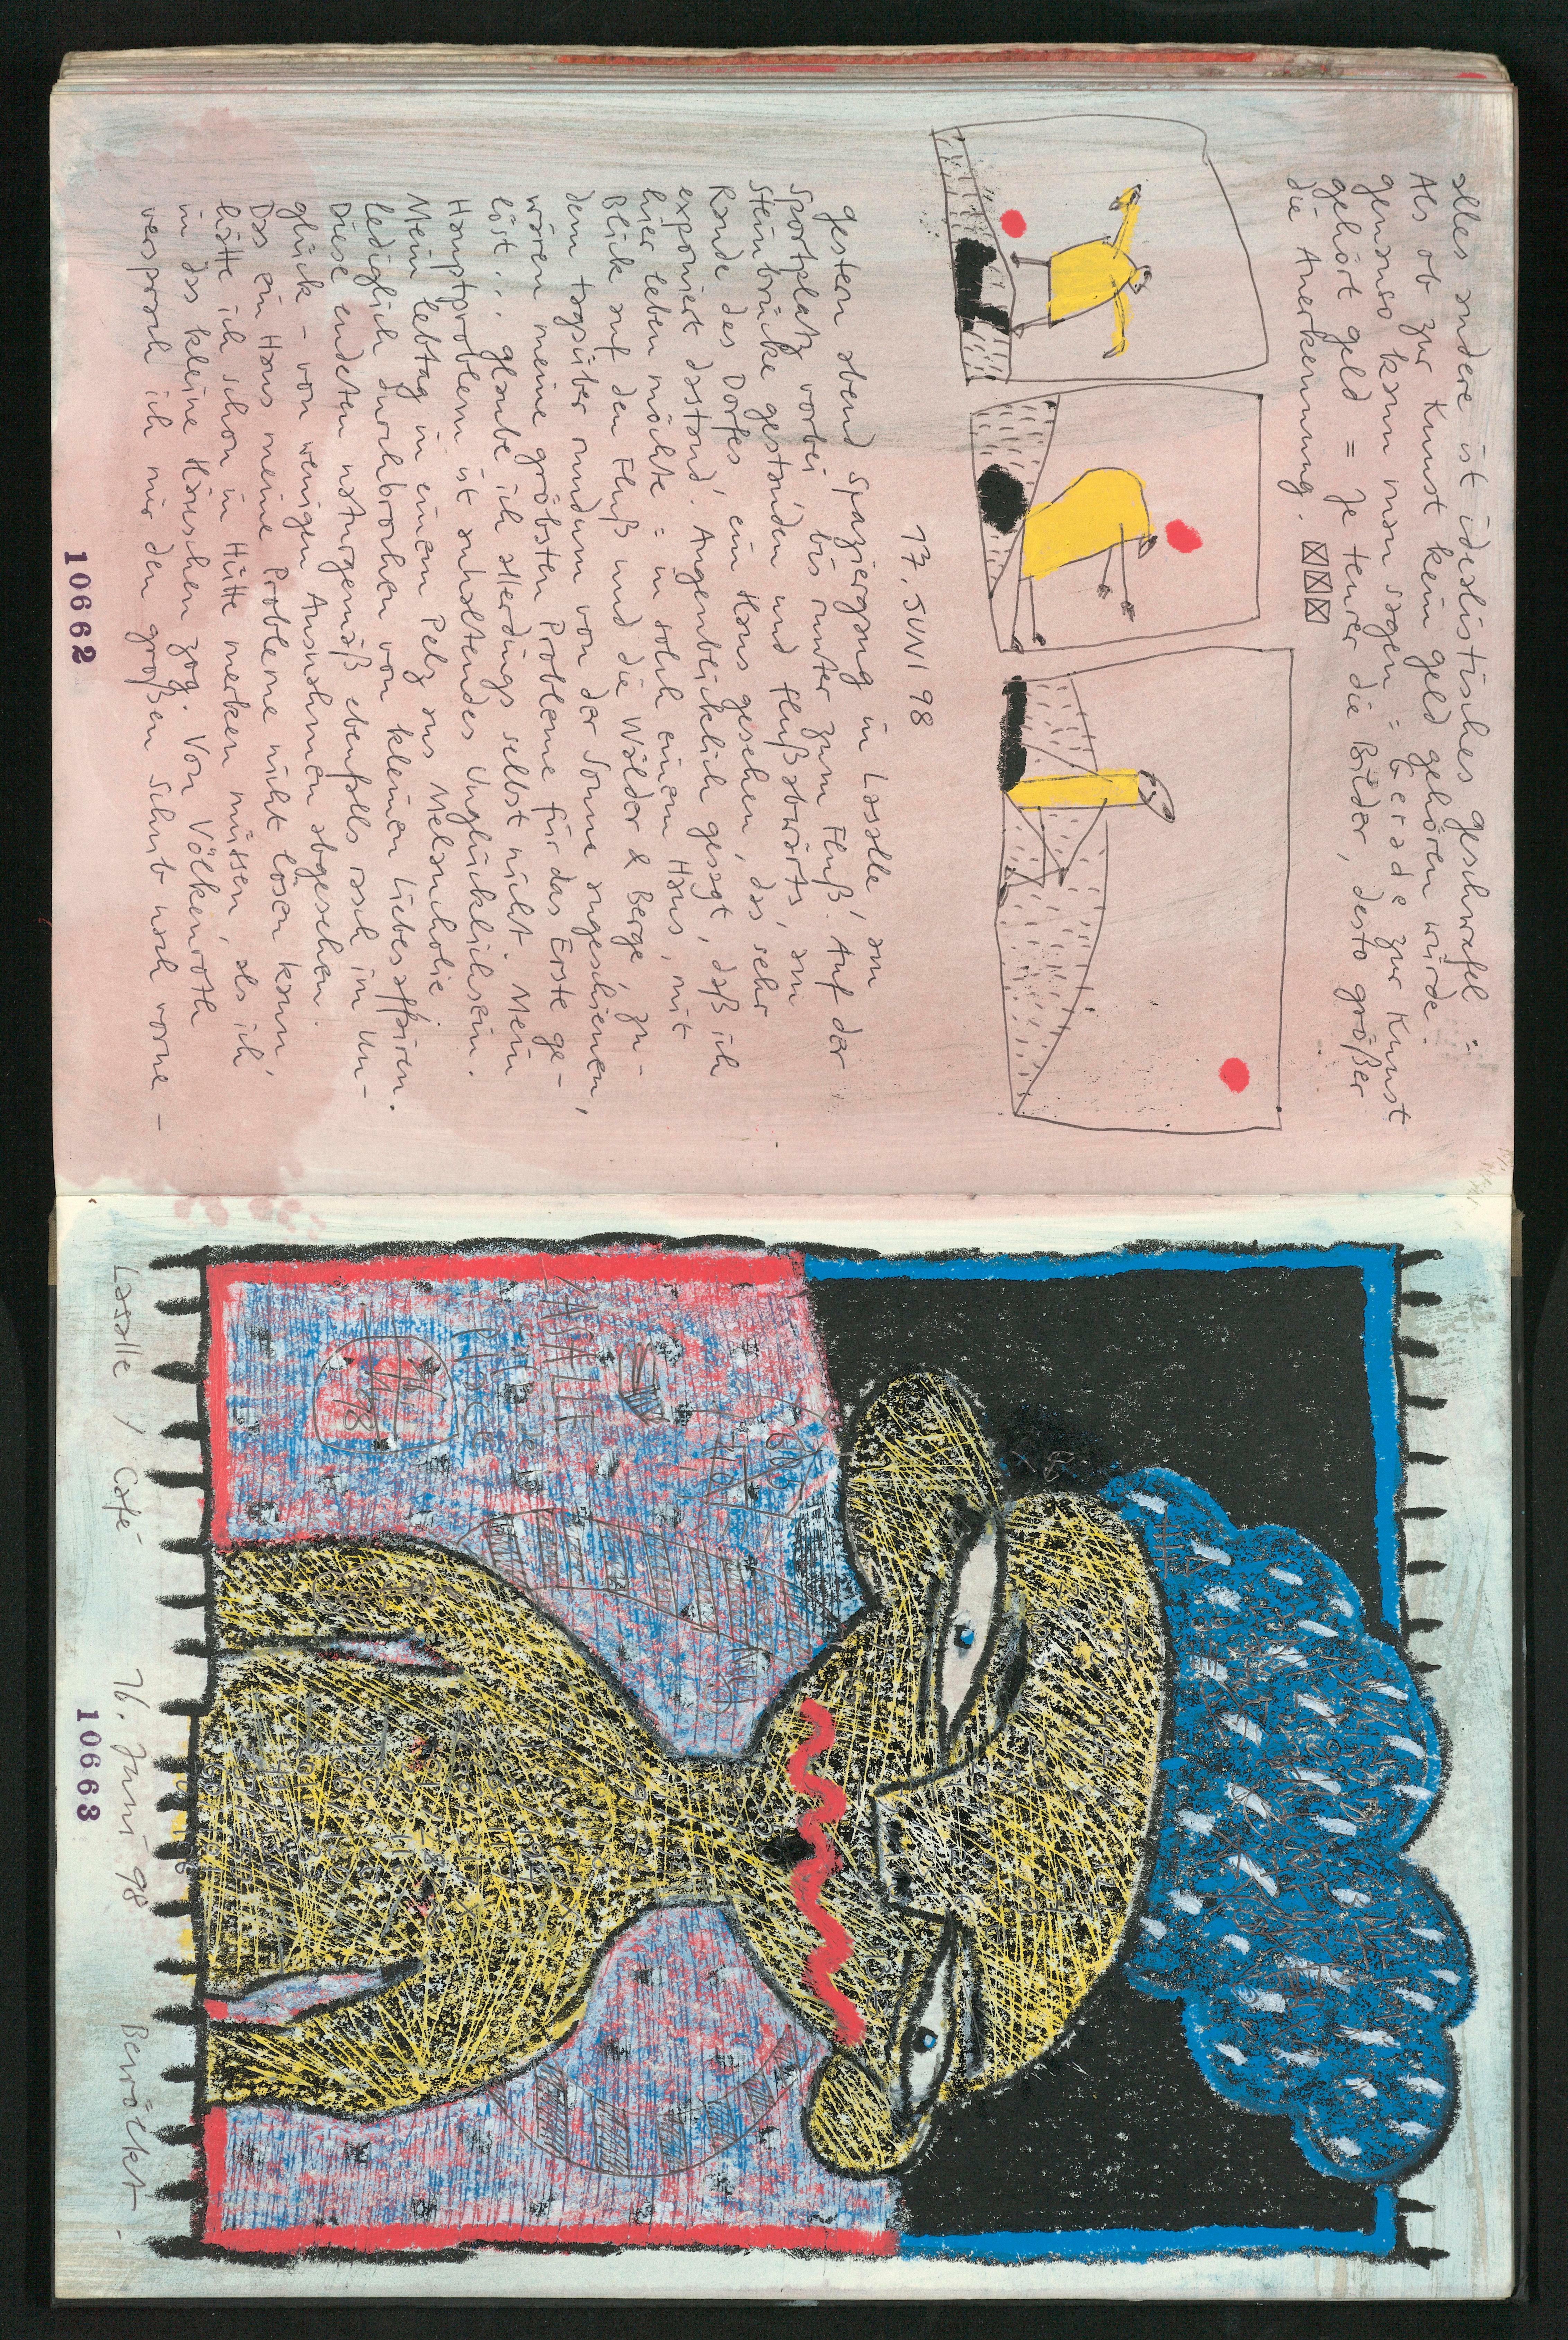 alles andere ist idealistisches geschwafel =
Als ob zur Kunst kein geld gehören würde.
genauso kann man sagen = Gerade zur Kunst
gehört geld = Je teurer die Bilder, desto größer
die Anerkennung.
17. JUNI 98
gestern abend spaziergang in Lasalle, am
Sportplatz vorbei, bis runter zum Fluß. Auf der
Steinbrücke gestanden und flußabwärts, am
Rande des Dorfes ein Haus gesehen, das sehr
exponiert dastand. Augenblicklich gesagt, daß ich
hier leben möchte = in solch einem Haus, mit
Blick auf den Fluß und die Wälder & Berge, zu-
dem tagsüber rundum von der Sonne angeschienen,
wären meine gröbsten Probleme für das Erste ge-
löst., glaube ich allerdings selbst nicht. Mein
Hauptproblem ist anhaltendes Unglücklichsein.
Mein lebtag in einem Pelz aus Melancholie.
lediglich durchbrochen von kleinen Liebesaffairen.
Diese endeten naturgemäß ebenfalls rasch im Un-
glück - von wenigen Ausnahmen abgesehen.
Das ein Haus meine Probleme nicht lösen kann,
hätte ich schon in Hütte merken müssen, als ich
in das kleine Häuschen zog. Von Völkenroth
versprach ich mir den großen Schub nach vorne -
10662
Lasalle, Café - 16. Juni 98 Bewölkt -
10663